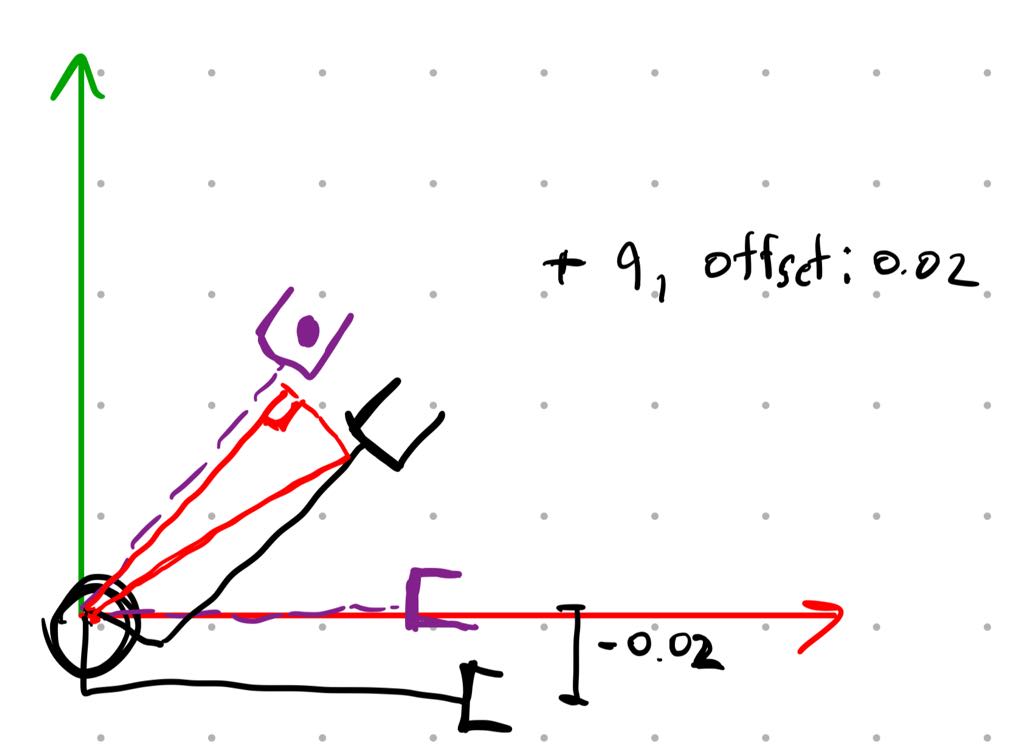 + q, offset: 0.02
-0.02